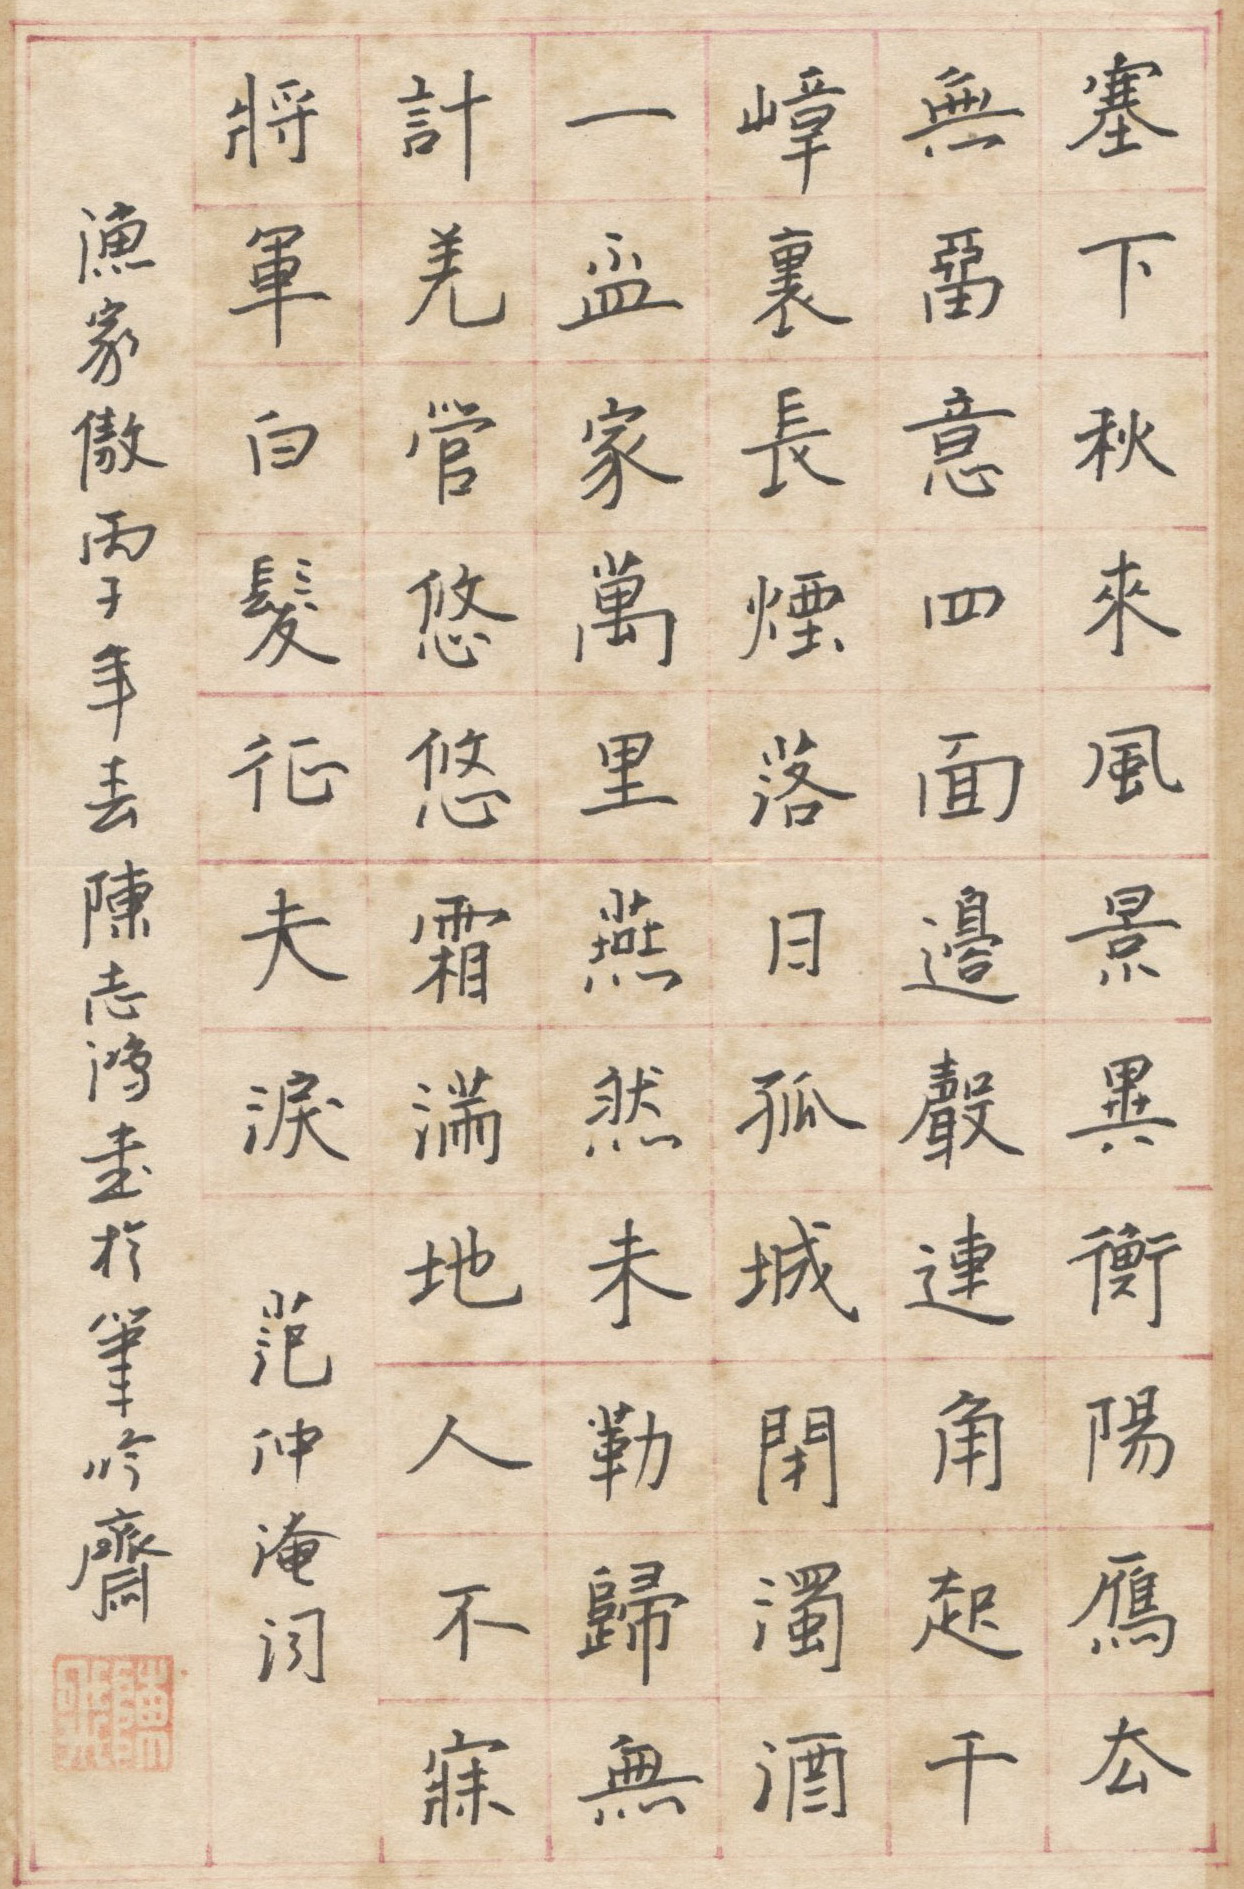 塞下秋來風景異衡陽鴈去
無畱意四面邉聲連角起千
嶂裏長煙落日孤城閉濁酒
一盃家萬里燕然未勒歸無
計羌管悠悠霜滿地人不寐
將軍白髮征夫淚 范仲淹词
漁家傲丙子年春陳志鴻書於筆吟齋